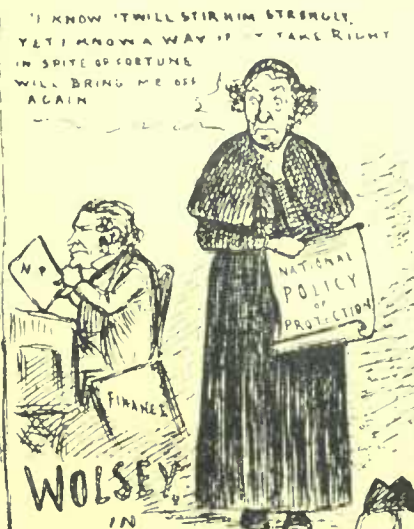 "I KNOW 'TWILL STIR HIM STRONGLY,
YET I KNOW A WAY IF IT TAKE RIGHT
IN SPITE OF FORTUNE
WILL BRING ME OFF
AGAIN
N P
NATIONAL
POLICY
OF
PROTECTION
FINANCE
WOLSEY
IN